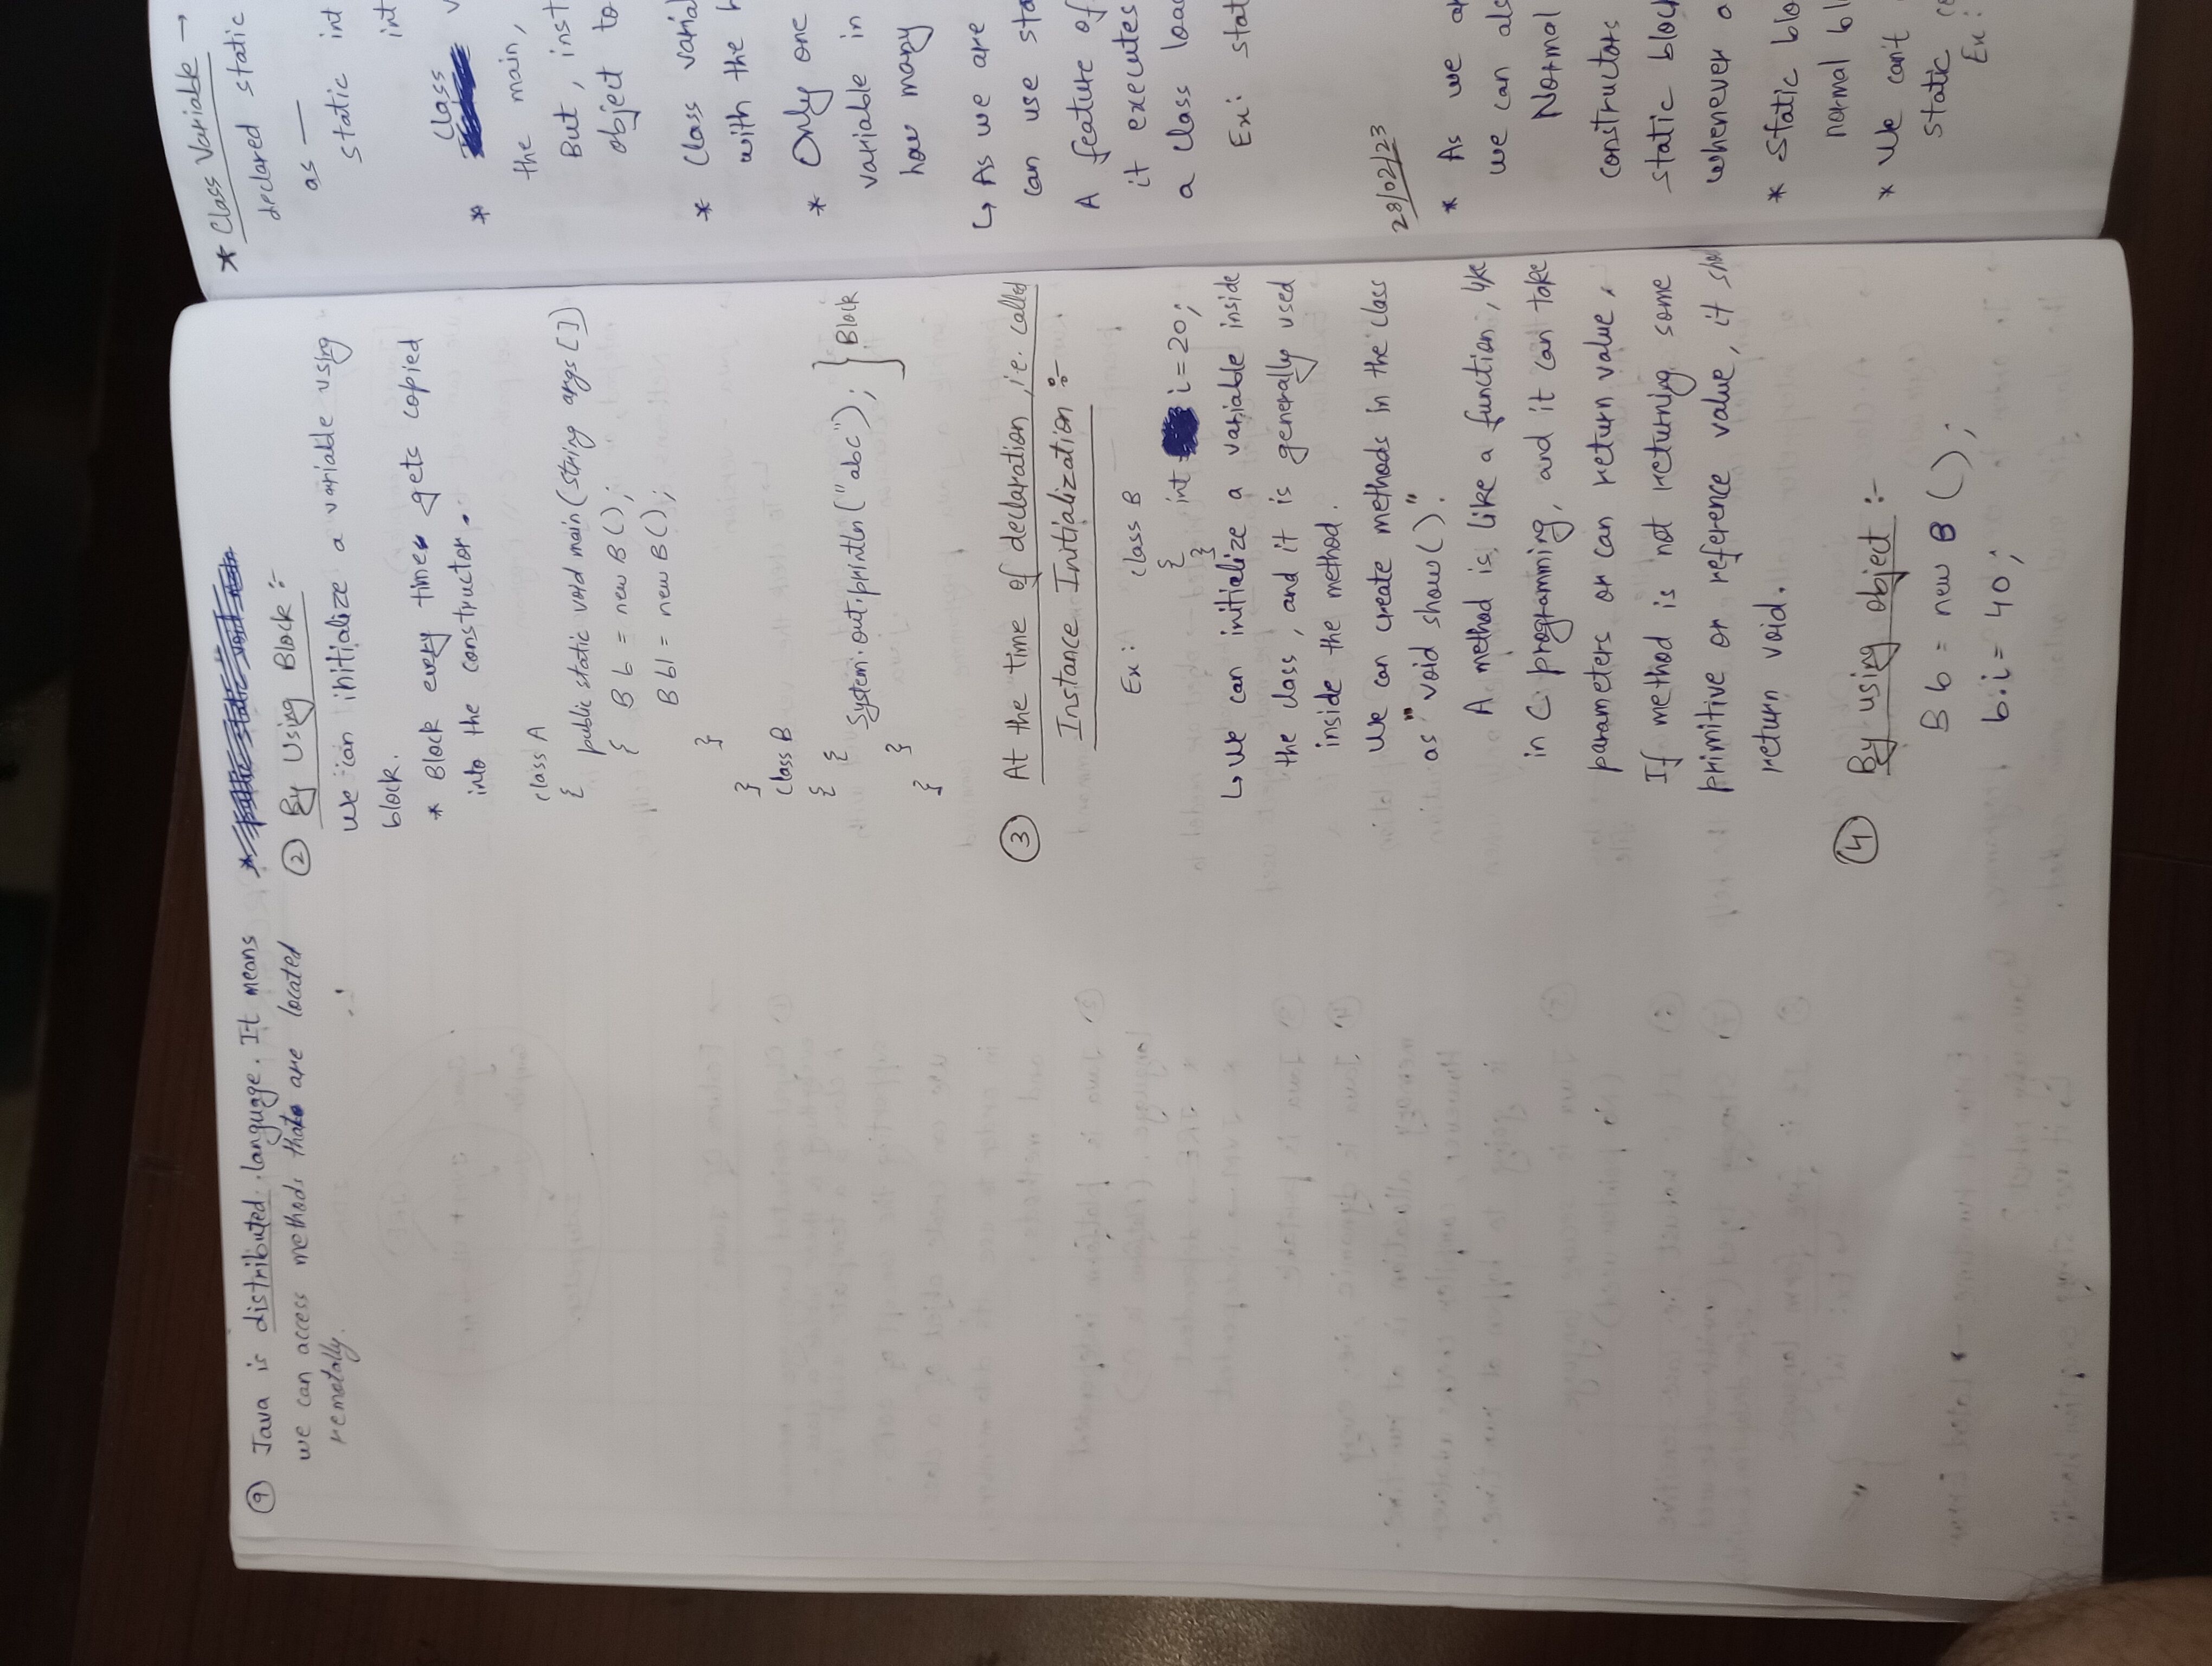 ⑨ Java is distributed language. It means
we can access methods that are located
remotally.
* public static void main
② By Using Block :-
We can initialize a variable using
block.
* Block every time gets copied
into the constructor.
class A
{
public static void main(String args [])
{ B b = new B();
B b1 = new B();
}
}
class B
{ {
System.out.println("abc"); } Block
}
}
③ At the time of declaration, i.e. called
Instance Initialization :-
Ex: class B
{ int i=20;
}
↳ We can initialize a variable inside
the class, and it is generally used
inside the method.
We can create methods in the class
as "void show()".
A method is like a function, like
in C programming, and it can take
parameters or can return value.
If method is not returning some
primitive or reference value, it sho
return void.
④ By using object :-
B b = new B ();
b.i = 40;
* Class Variable →
declared static
as —
static int
int
class
*
the main,
But, inst
object to
* Class varia
with the
* Only one
variable in
how many
↳ As we are
can use sta
A feature of
it executes
a class loa
Ex: stat
28/02/23
* As we a
we can als
Normal
constructors
static bloc
whenever a
* Static blo
normal bl
* We can't
static
Ex: